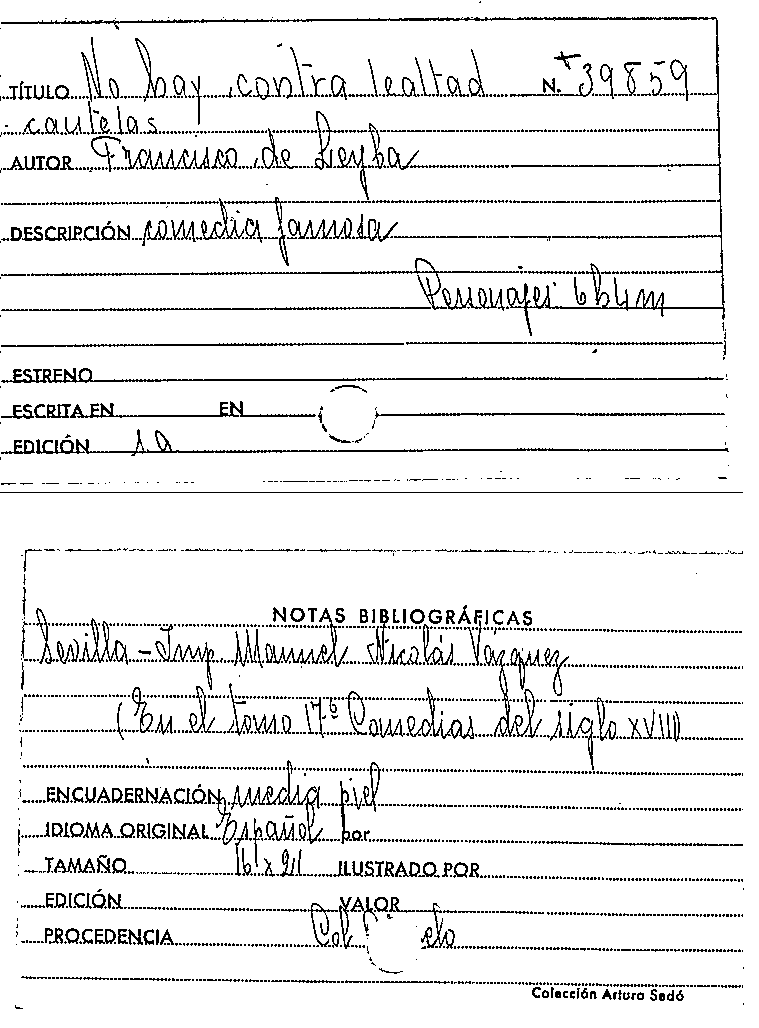 TÍTULO No hay contra lealtad N. +39859
cautelas
AUTOR Francisco de Leyba
DESCRIPCIÓN comedia famosa
Personajes 6 h 4 m
ESTRENO
ESCRITA EN EN
EDICIÓN s.a
NOTAS BIBLIOGRÁFICAS
Sevilla - Imp Manuel Nicolás Vázquez
(En el tomo 17º Comedias del siglo XVIII)
ENCUADERNACIÓN media piel
IDIOMA ORIGINAL Español por
TAMAÑO ILUSTRADO POR
EDICIÓN VALOR
PROCEDENCIA Col
Colección Arturo Sedó